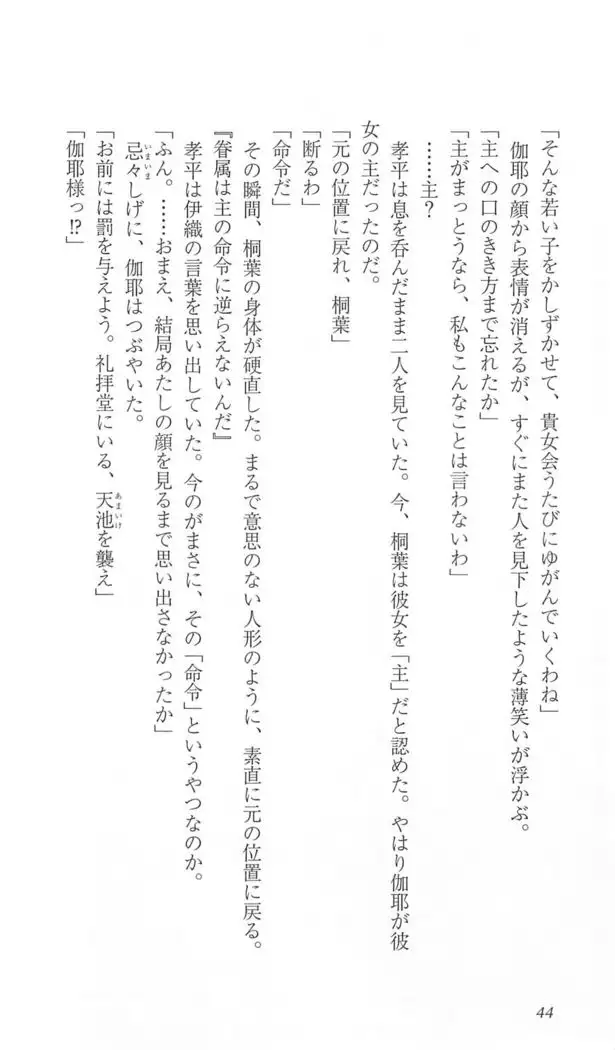 「そんな若い子をかしずかせて、貴女会うたびにゆがんでいくわね」
伽耶の顔から表情が消えるが、すぐにまた人を見下したような薄笑いが浮かぶ。
「主への口のきき方まで忘れたか」
「主がまっとうなら、私もこんなことは言わないわ」
……主？
孝平は息を呑んだまま二人を見ていた。今、桐葉は彼女を「主」だと認めた。やはり伽耶が彼
女の主だったのだ。
「元の位置に戻れ、桐葉」
「断るわ」
「命令だ」
その瞬間、桐葉の身体が硬直した。まるで意思のない人形のように、素直に元の位置に戻る。
『眷属は主の命令に逆らえないんだ』
孝平は伊織の言葉を思い出していた。今のがまさに、その「命令」というやつなのか。
「ふん。……おまえ、結局あたしの顔を見るまで思い出さなかったか」
忌々しげに、伽耶はつぶやいた。
いまいま
「お前には罰を与えよう。礼拝堂にいる、天池を襲え」
あまいけ
「伽耶様っ!?」
44